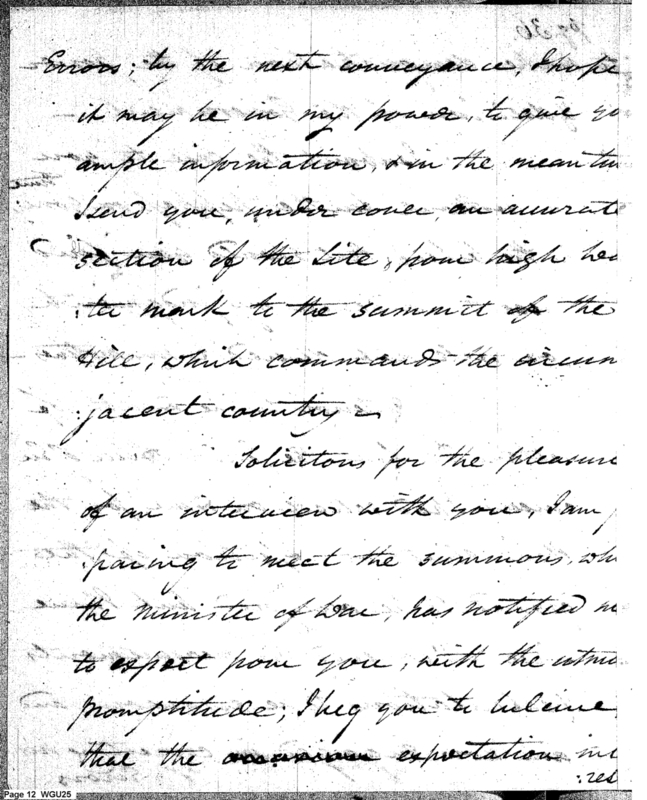 pg 30
Errors; by the next conveyance, I hope
it may be in my power, to give yo
ample information, & in the mean tim
I send you, under cover, an accurate
section of the Site, from high wa
:ter mark to the summit of the
Hill, which commands the circum
:jacent country
Solicitous for the pleasure
of an interview with you, I am p
:paring to meet the summons, wh
the Minister of War, has notified m
to expect from you, with the utmo
promptitude; I beg you to believe
that the expectation int
:res
Page 12 WGU25